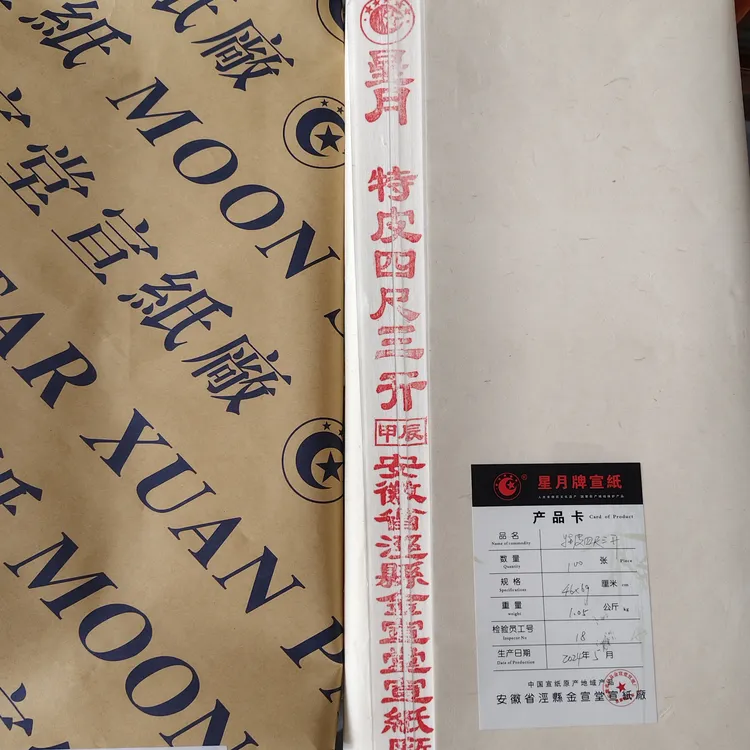 紙廠
紙 MOON S
堂宣紙廠
AR XUAN PA
MOON
宣
星月
特皮四尺三开
甲辰
安徽省涇縣金宣堂宣紙廠
星月牌宣紙
产品卡 Card of Product
品名 特皮四尺三开
Name of commodity
数量 100 张 Piece
Quantity
规格 46×69 厘米 cm
Specifications
重量 1.05 公斤 kg
weight
检验员工号 18
Inspector No
生产日期 2024年5月
Date of Production
中国宣纸原产地域产品
安徽省涇縣金宣堂宣紙廠